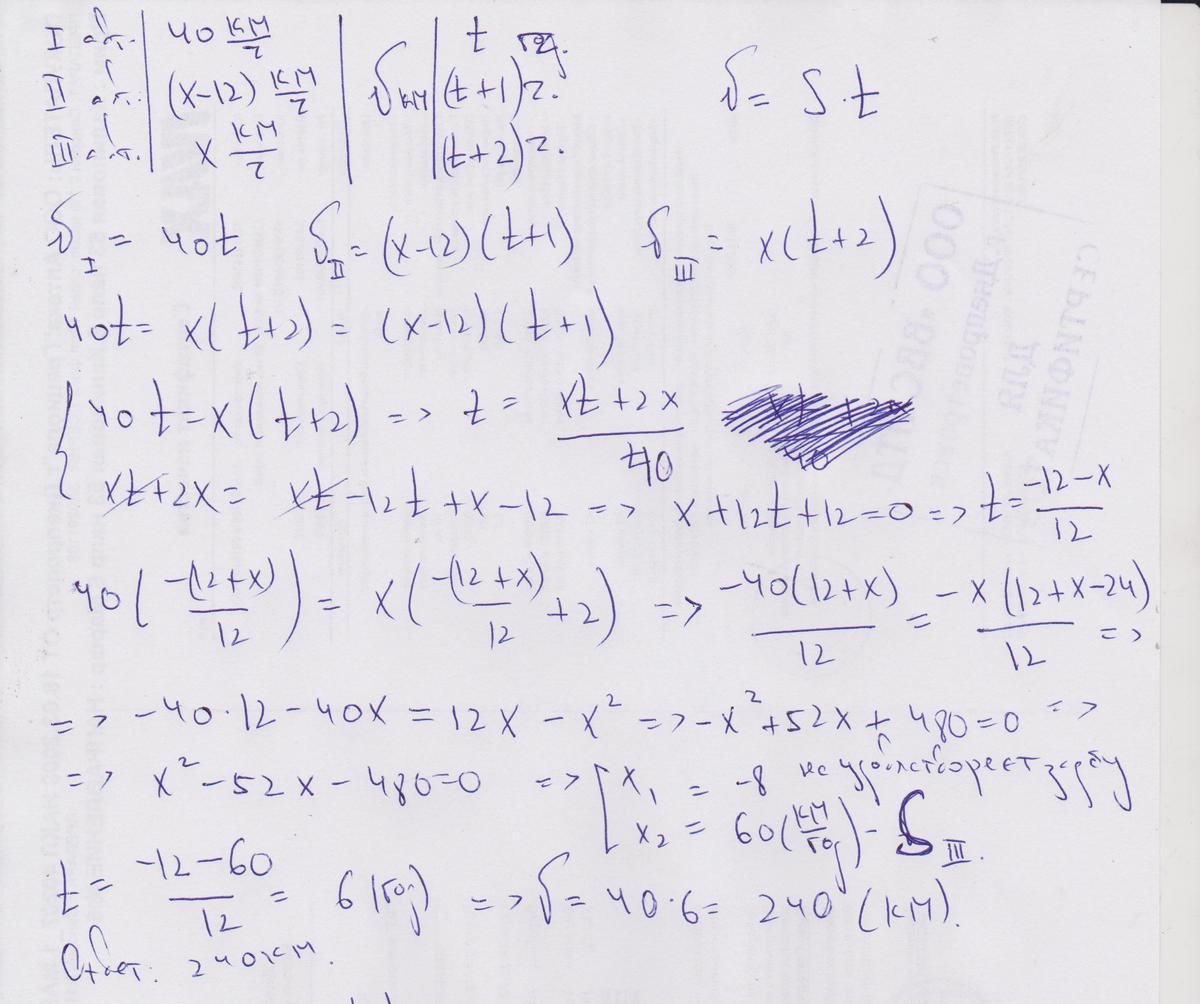 I авт. | 40 км/г | S км | t год.
II авт. | (x-12) км/г | (t+1) г.
III авт. | x км/г | (t+2) г.
S = S · t
S_I = 40t S_II = (x-12)(t+1) S_III = x(t+2)
40t = x(t+2) = (x-12)(t+1)
{ 40t = x(t+2) => t = (xt+2x)/40
xt+2x = xt-12t+x-12 => x+12t+12=0 => t = (-12-x)/12
40(-(12+x)/12) = x(-(12+x)/12 + 2) => -40(12+x)/12 = -x(12+x-24)/12 =>
=> -40·12-40x = 12x-x² => -x²+52x+480=0 =>
=> x²-52x-480=0 => [ x₁ = -8 не удовлетворяет
x₂ = 60 (км/год) - S_III.
t = (-12-60)/12 = 6 (год) => S = 40·6 = 240 (км).
Ответ: 240 км.
ООО
СЕРТИФИКАТ
ДЛЯ